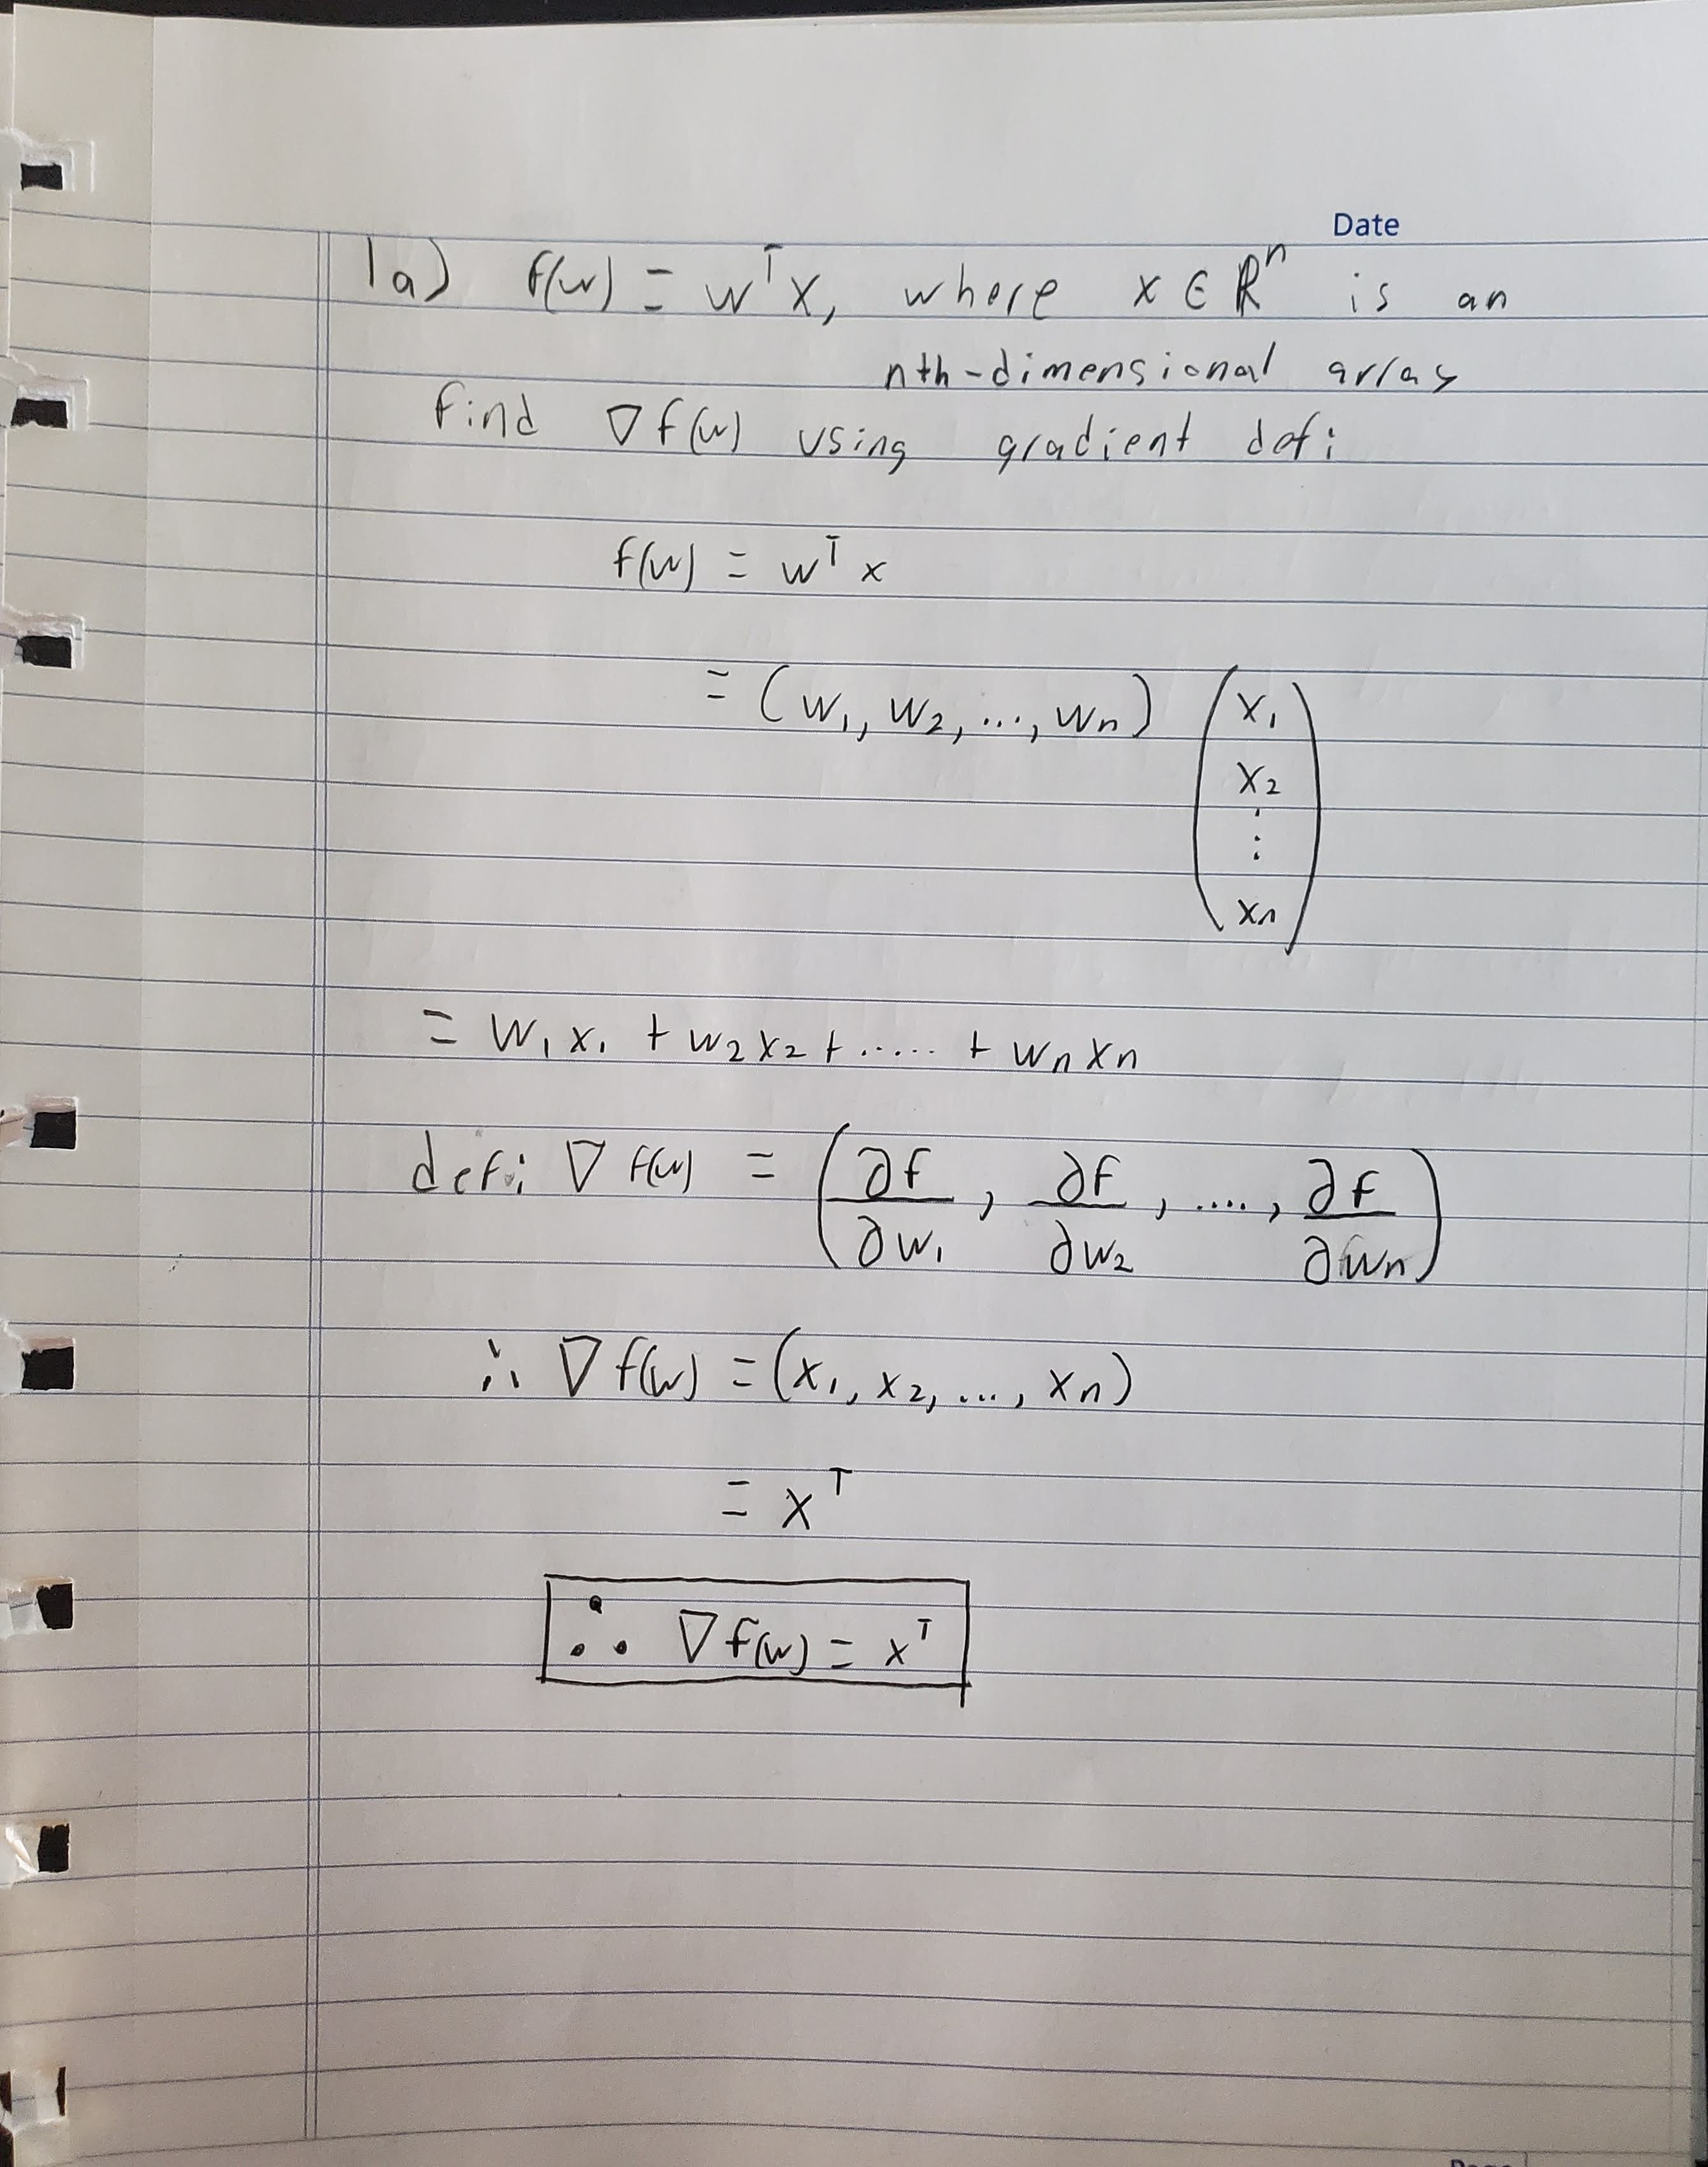 Date
1a) f(w) = wᵀx, where x ∈ ℝⁿ is an
nth-dimensional array
find ∇f(w) using gradient def:
f(w) = wᵀx
= (w₁, w₂, ..., wₙ) (x₁
x₂
⋮
xₙ)
= w₁x₁ + w₂x₂ + ..... + wₙxₙ
def: ∇f(w) = (∂f/∂w₁, ∂f/∂w₂, ...., ∂f/∂wₙ)
∴ ∇f(w) = (x₁, x₂, ..., xₙ)
= xᵀ
∴ ∇f(w) = xᵀ